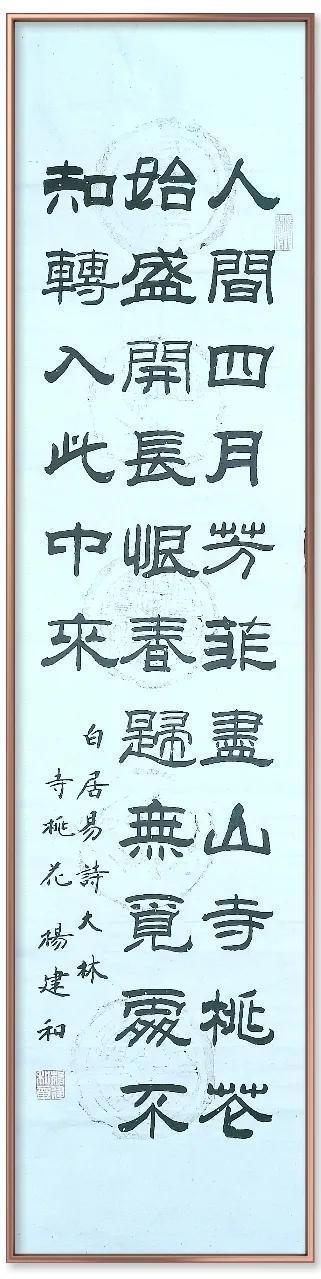 人間四月芳菲盡山寺桃花
始盛開長恨春歸無覓處不
知轉入此中來
白居易詩大林
寺桃花 楊建和